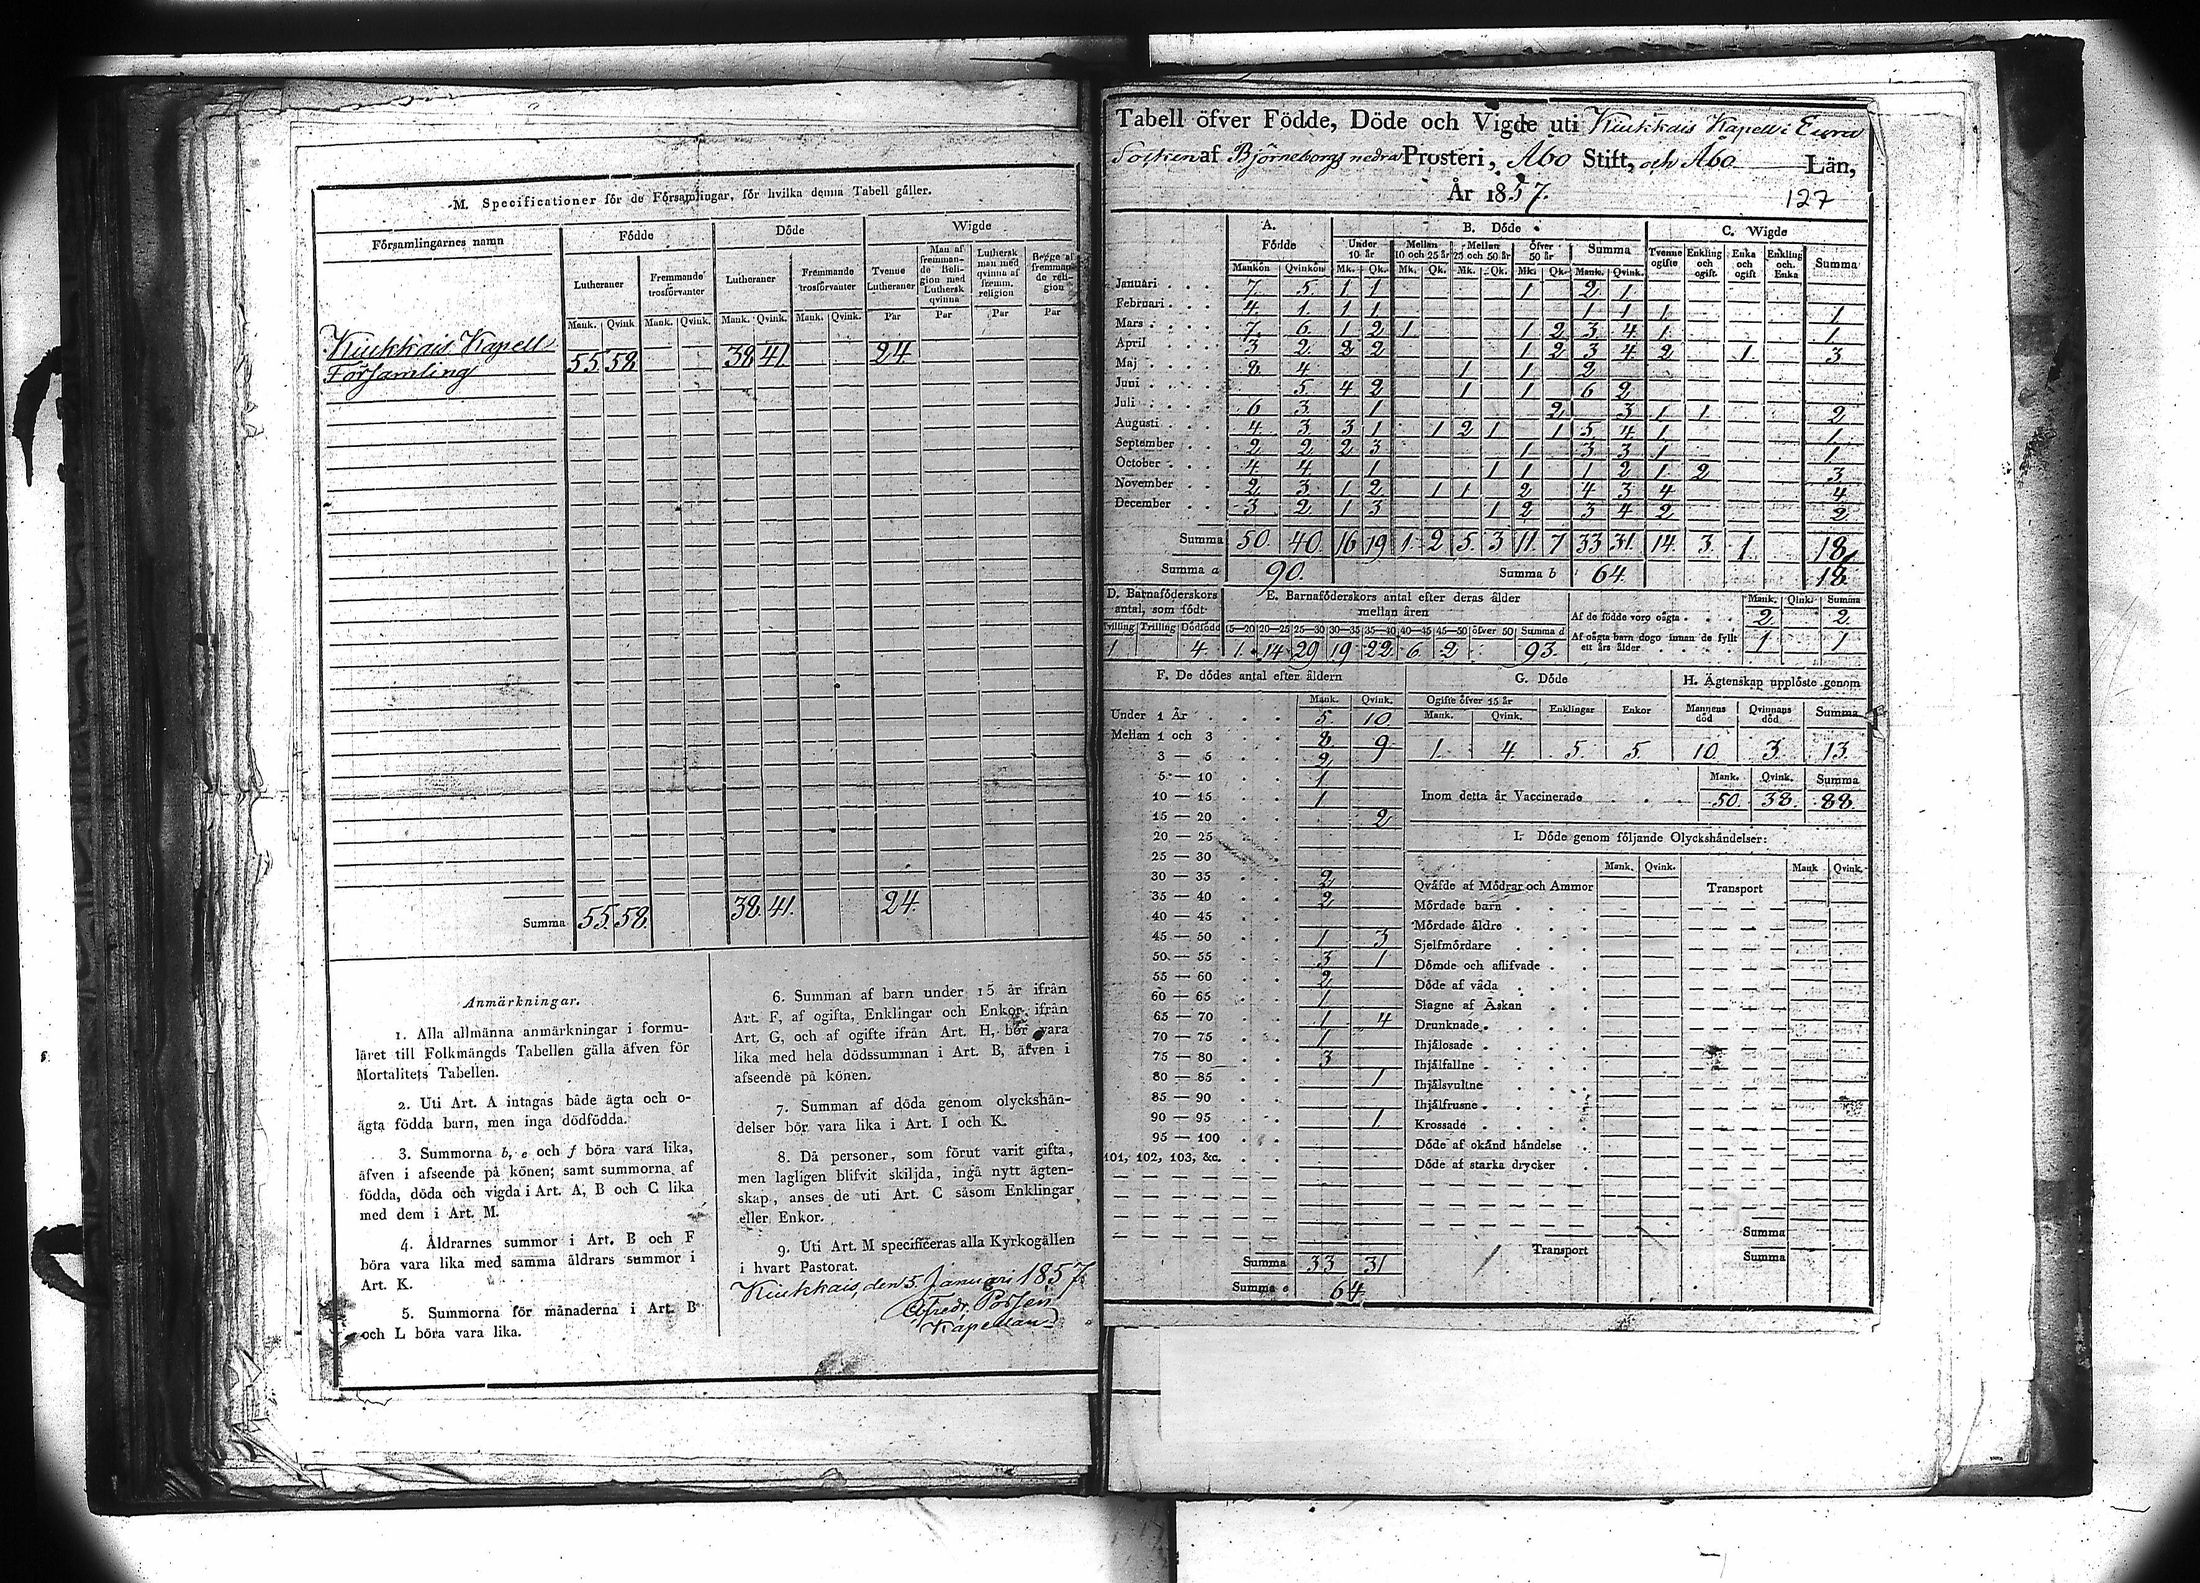 M. Specificationer för de Församlingar, för hvilka denna Tabell gäller.
Församlingarnes namn Födde Döde Wigde
Lutheraner Fremmande trosförvanter Lutheraner Fremmande trosförvanter Tvenne Lutheraner Man af fremmande Religion med Luthersk qvinna Luthersk man med qvinna af fremm. religion Begge af fremmande religion
Mank. Qvink Mank. Qvink. Mank. Qvink. Mank. Qvink. Par Par Par Par
Kiukkais Kapell 55 58 38 41 24
Församling
Summa 55 58. 38. 41. 24.
Anmärkningar.
1. Alla allmänna anmärkningar i formu-
läret till Folkmängds Tabellen gälla äfven för
Mortalitets Tabellen.
2. Uti Art. A intagas både ägta och o-
ägta födda barn, men inga dödfödda.
3. Summorna b, e och f böra vara lika,
äfven i afseende på könen; samt summorna af
födda, döda och vigda i Art. A, B och C lika
med dem i Art. M.
4. Åldrarnes summor i Art. B och F
böra vara lika med samma åldrars summor i
Art. K.
5. Summorna för månaderna i Art. B
och L böra vara lika.
6. Summan af barn under 15 år ifrån
Art. F, af ogifta, Enklingar och Enkor ifrån
Art. G, och af ogifte ifrån Art. H, bör vara
lika med hela dödssumman i Art. B, äfven i
afseende på könen.
7. Summan af döda genom olyckshän-
delser bör vara lika i Art. I och K.
8. Då personer, som förut varit gifta,
men lagligen blifvit skiljda, ingå nytt ägten-
skap, anses de uti Art. C såsom Enklingar
eller Enkor.
9. Uti Art. M specificeras alla Kyrkogällen
i hvart Pastorat.
Kiukkais, den 5 Januari 1857
Kapellan
Tabell öfver Födde, Döde och Vigde uti Kiukkais Kapell i Eura
Socken af Björneborgs nedra Prosteri, Åbo Stift, och Åbo Län,
År 1857.
127
A. Födde B. Döde C. Wigde
Under 10 år Mellan 10 och 25 år Mellan 25 och 50 år Öfver 50 år Summa Tvenne ogifte Enkling och ogift Enka och ogift Enkling och Enka Summa
Mankön Qvinkön Mk. Qk. Mk. Qk. Mk. Qk. Mk. Qk. Mank. Qvink.
Januari 7 5 1 1 1 2 1
Februari 4 1 1 1 1 1 1 1
Mars 7 6 1 2 1 1 2 3 4 1 1
April 3 2 2 2 1 2 3 4 2 1 3
Maj 8 4 1 1 2
Juni 5 4 2 1 1 6 2
Juli 6 3 1 2 3 1 1 2
Augusti 4 3 3 1 1 2 1 1 5 4 1 1
September 2 2 2 3 1 3 3 1 1
October 4 4 1 1 1 1 2 1 2 3
November 2 3 1 2 1 1 2 4 3 4 4
December 3 2 1 3 1 2 3 4 2 2
Summa 50 40 16 19 1 2 5 3 11 7 33 31 14 3 1 18
Summa a 90. Summa b 64. 18.
D. Barnaföderskors antal, som födt
Tvilling Trilling Dödfödd
1 4
E. Barnaföderskors antal efter deras ålder mellan åren
15—20 20—25 25—30 30—35 35—40 40—45 45—50 öfver 50 Summa d
1 14 29 19 22 6 2 93.
Mank. Qink. Summa
Af de födde voro oägta 2 2
Af oägta barn dogo innan de fyllt ett års ålder 1 1
F. De dödes antal efter åldern
Mank. Qvink.
Under 1 År 5 10
Mellan 1 och 3 8 9
3 — 5 2
5 — 10 1
10 — 15 1
15 — 20 2
20 — 25
25 — 30
30 — 35 2
35 — 40 2
40 — 45
45 — 50 1 3
50 — 55 3 1
55 — 60 2
60 — 65 1
65 — 70 1 4
70 — 75 1
75 — 80 3
80 — 85 1
85 — 90
90 — 95 1
95 — 100
101, 102, 103, &c.
Summa 33 31
Summa e 64
G. Döde
Ogifte öfver 15 år Enklingar Enkor
Mank. Qvink.
1. 4. 5. 5.
H. Ägtenskap upplöste genom
Mannens död Qvinnans död Summa
10 3 13
Mank. Qvink. Summa
Inom detta år Vaccinerade 50. 38. 88.
I. Döde genom följande Olyckshändelser:
Mank. Qvink. Mank Qvink.
Qväfde af Mödrar och Ammor Transport
Mördade barn
Mördade äldre
Sjelfmördare
Dömde och aflifvade
Döde af våda
Slagne af Åskan
Drunknade
Ihjälosade
Ihjälfallne
Ihjälsvultne
Ihjälfrusne
Krossade
Döde af okänd händelse
Döde af starka drycker
Summa
Transport Summa